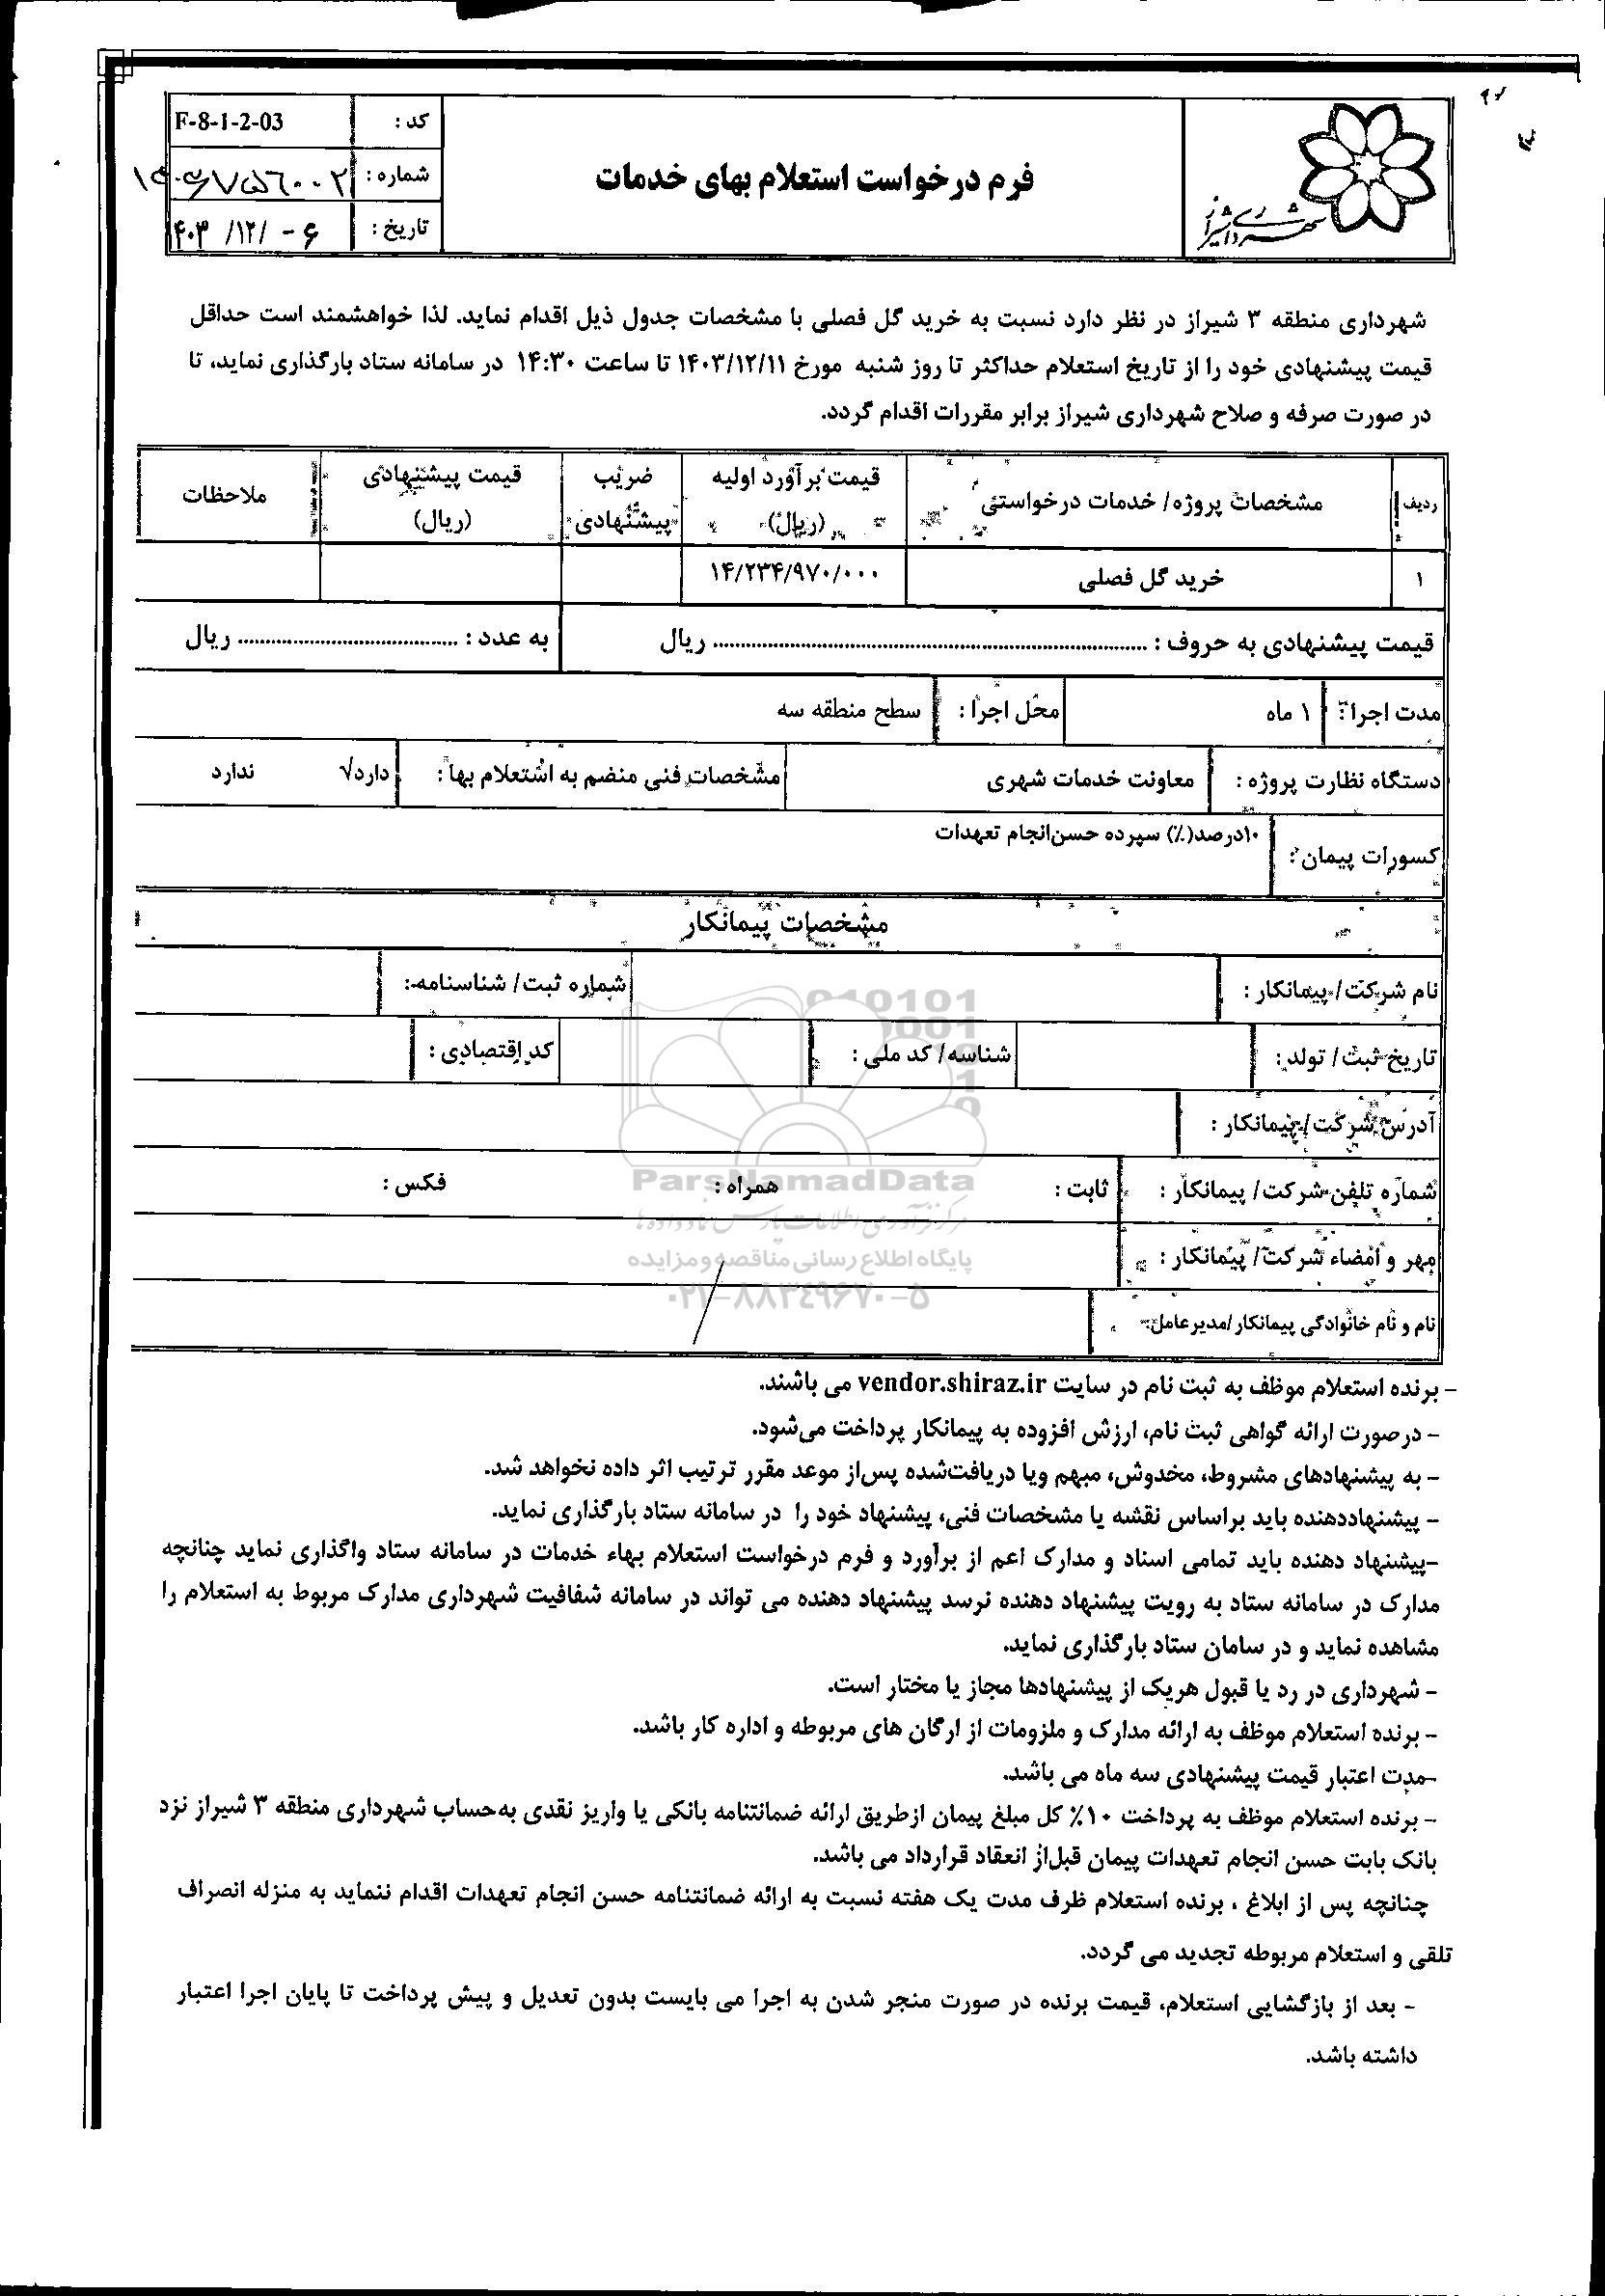 شهرداری شیراز
فرم درخواست استعلام بهای خدمات
کد : F-8-1-2-03
شماره :
تاریخ : ۴۰۳/۱۲/-۶
شهرداری منطقه ۳ شیراز در نظر دارد نسبت به خرید گل فصلی با مشخصات جدول ذیل اقدام نماید. لذا خواهشمند است حداقل
قیمت پیشنهادی خود را از تاریخ استعلام حداکثر تا روز شنبه مورخ ۱۴۰۳/۱۲/۱۱ تا ساعت ۱۴:۳۰ در سامانه ستاد بارگذاری نماید، تا
در صورت صرفه و صلاح شهرداری شیراز برابر مقررات اقدام گردد.
ردیف مشخصات پروژه/ خدمات درخواستی قیمت برآورد اولیه (ریال) ضریب پیشنهادی قیمت پیشنهادی (ریال) ملاحظات
۱ خرید گل فصلی ۱۴/۲۳۴/۹۷۰/۰۰۰
قیمت پیشنهادی به حروف : ........................................ ریال به عدد : ........................................ ریال
مدت اجرا: ۱ ماه محل اجرا : سطح منطقه سه
دستگاه نظارت پروژه : معاونت خدمات شهری مشخصات فنی منضم به استعلام بها : دارد√ ندارد
کسورات پیمان : ۱۰درصد(٪) سپرده حسن‌انجام تعهدات
مشخصات پیمانکار
نام شرکت/ پیمانکار : شماره ثبت/ شناسنامه :
تاریخ ثبت/ تولد : شناسه/ کد ملی : کد اقتصادی :
آدرس شرکت/ پیمانکار :
شماره تلفن شرکت/ پیمانکار : ثابت : همراه : فکس :
مهر و امضاء شرکت/ پیمانکار :
نام و نام خانوادگی پیمانکار/مدیرعامل:
ParsNamadData
مرکز فرآوری اطلاعات پارس نماد داده ها
پایگاه اطلاع رسانی مناقصه و مزایده
۰۲۱-۸۸۳۴۹۶۷۰-۵
- برنده استعلام موظف به ثبت نام در سایت vendor.shiraz.ir می باشند.
- درصورت ارائه گواهی ثبت نام، ارزش افزوده به پیمانکار پرداخت می‌شود.
- به پیشنهادهای مشروط، مخدوش، مبهم ویا دریافت‌شده پس‌از موعد مقرر ترتیب اثر داده نخواهد شد.
- پیشنهاددهنده باید براساس نقشه یا مشخصات فنی، پیشنهاد خود را در سامانه ستاد بارگذاری نماید.
-پیشنهاد دهنده باید تمامی اسناد و مدارک اعم از برآورد و فرم درخواست استعلام بهاء خدمات در سامانه ستاد واگذاری نماید چنانچه
مدارک در سامانه ستاد به رویت پیشنهاد دهنده نرسد پیشنهاد دهنده می تواند در سامانه شفافیت شهرداری مدارک مربوط به استعلام را
مشاهده نماید و در سامان ستاد بارگذاری نماید.
- شهرداری در رد یا قبول هریک از پیشنهادها مجاز یا مختار است.
- برنده استعلام موظف به ارائه مدارک و ملزومات از ارگان های مربوطه و اداره کار باشد.
-مدت اعتبار قیمت پیشنهادی سه ماه می باشد.
- برنده استعلام موظف به پرداخت ۱۰٪ کل مبلغ پیمان ازطریق ارائه ضمانتنامه بانکی یا واریز نقدی به‌حساب شهرداری منطقه ۳ شیراز نزد
بانک بابت حسن انجام تعهدات پیمان قبل‌از انعقاد قرارداد می باشد.
چنانچه پس از ابلاغ ، برنده استعلام ظرف مدت یک هفته نسبت به ارائه ضمانتنامه حسن انجام تعهدات اقدام ننماید به منزله انصراف
تلقی و استعلام مربوطه تجدید می گردد.
- بعد از بازگشایی استعلام، قیمت برنده در صورت منجر شدن به اجرا می بایست بدون تعدیل و پیش پرداخت تا پایان اجرا اعتبار
داشته باشد.